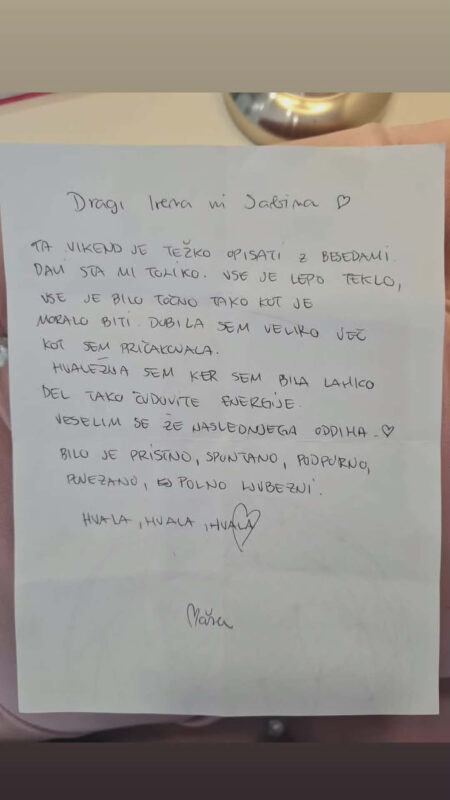 Dragi Irena in Sabina ♡
TA VIKEND JE TEŽKO OPISATI Z BESEDAMI.
DALI STA MI TOLIKO. VSE JE LEPO TEKLO,
VSE JE BILO TOČNO TAKO KOT JE
MORALO BITI. DOBILA SEM VELIKO VEČ
KOT SEM PRIČAKOVALA.
HVALEŽNA SEM KER SEM BILA LAHKO
DEL TAKO ČUDOVITE ENERGIJE.
VESELIM SE ŽE NASLEDNJEGA ODDIHA. ♡
BILO JE PRISTNO, SPONTANO, PODPORNO,
POVEZANO, POLNO LJUBEZNI.
HVALA, HVALA, HVALA ♡
Maša